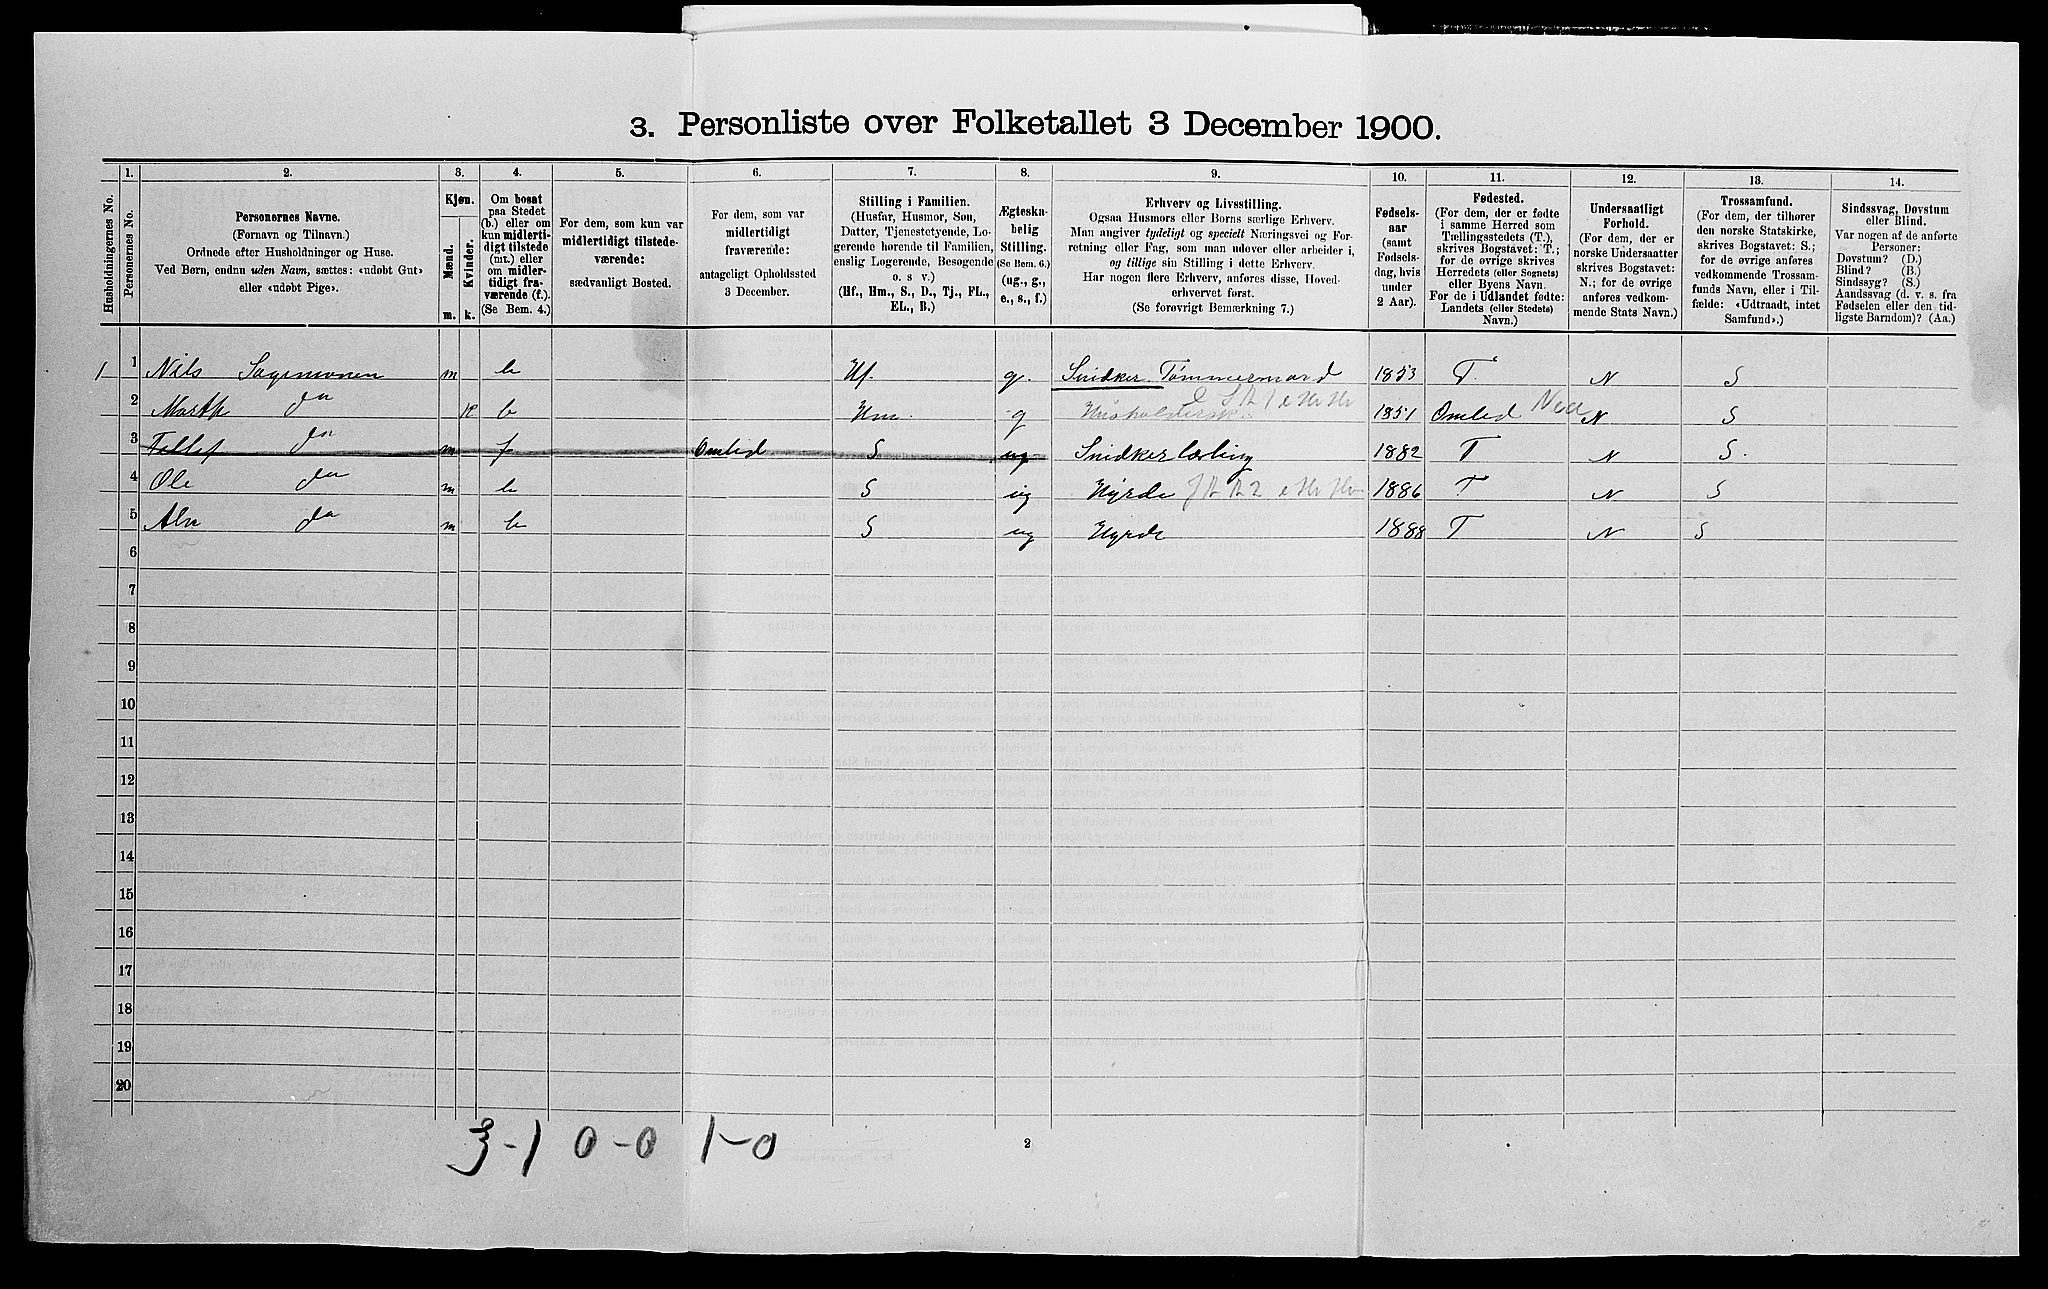 3. Personliste over Folketallet 3 December 1900.
Husholdningernes No.
1.
Personernes No.
2.
Personernes Navne.
(Fornavn og Tilnavn.)
Ordnede efter Husholdninger og Huse.
Ved Børn, endnu uden Navn, sættes: «udøbt Gut»
eller «udøbt Pige».
3.
Kjøn.
Mænd.
Kvinder.
m. k.
4.
Om bosat
paa Stedet
(b.) eller om
kun midlerti-
digt tilstede
(mt.) eller
om midler-
tidigt fra-
værende (f.)
(Se Bem. 4.)
5.
For dem, som kun var
midlertidigt tilstede-
værende:
sædvanligt Bosted.
6.
For dem, som var
midlertidigt
fraværende:
antageligt Opholdssted
3 December.
7.
Stilling i Familien.
(Husfar, Husmor, Søn,
Datter, Tjenestetyende, Lo-
gerende hørende til Familien,
enslig Logerende, Besøgende
o. s v.)
(Hf., Hm., S., D., Tj., FL.,
EL., B.)
8.
Ægteska-
belig
Stilling.
(Se Bem. 6.)
(ug., g.,
e., s., f.)
9.
Erhverv og Livsstilling.
Ogsaa Husmors eller Børns særlige Erhverv.
Man angiver tydeligt og specielt Næringsvei og For-
retning eller Fag, som man udover eller arbeider i,
og tillige sin Stilling i dette Erhverv.
Har nogen flere Erhverv, anføres disse, Hoved-
erhvervet først.
(Se forøvrigt Bemærkning 7.)
10.
Fødsels-
aar
(samt
Fødsels-
dag, hvis
under
2 Aar).
11.
Fødested.
(For dem, der er fødte
i samme Herred som
Tællingsstedets (T.),
skrives Bogstavet: T.;
for de øvrige skrives
Herredets (eller Sognets)
eller Byens Navn.
For de i Udlandet fødte:
Landets (eller Stedets)
Navn.)
12.
Undersaatligt
Forhold.
(For dem, der er
norske Undersaatter
skrives Bogstavet:
N.; for de øvrige
anføres vedkom-
mende Stats Navn.)
13.
Trossamfund.
(For dem, der tilhører
den norske Statskirke,
skrives Bogstavet: S.;
for de øvrige anføres
vedkommende Trossam-
funds Navn, eller i Til-
fælde: «Udtraadt, intet
Samfund».)
14.
Sindssvag, Døvstum
eller Blind.
Var nogen af de anførte
Personer:
Døvstum? (D.)
Blind? (B.)
Sindssyg? (S.)
Aandssvag (d. v. s. fra
Fødselen eller den tid-
ligste Barndom)? (Aa.)
1 1 Nils m b Hf. g. Snidker Tømmermand 1853 T. N S
2 do k b Hm. g 1851 Omlid Ned N S
3 do m f Omlid S ug Snidkerlærling 1882 T N S.
4 Ole do m b S ug Hyrde 1886 T N S
5 do m b S ug Hyrde 1888 T N S
6
7
8
9
10
11
12
13
14
15
16
17
18
19
20
3-1 0-0 1-0
2